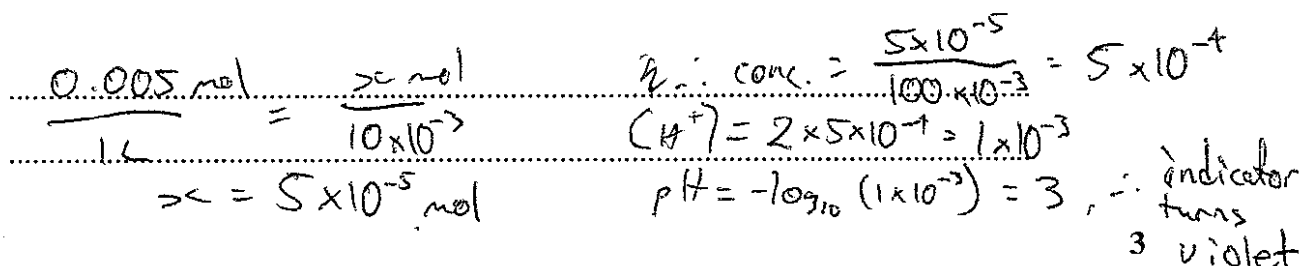 0.005 mol / 1L = x mol / 10×10⁻³
x = 5×10⁻⁵ mol
∴ conc. = 5×10⁻⁵ / 100×10⁻³ = 5×10⁻⁴
(H⁺) = 2×5×10⁻⁴ = 1×10⁻³
pH = -log₁₀ (1×10⁻³) = 3, ∴ indicator
turns
violet
3